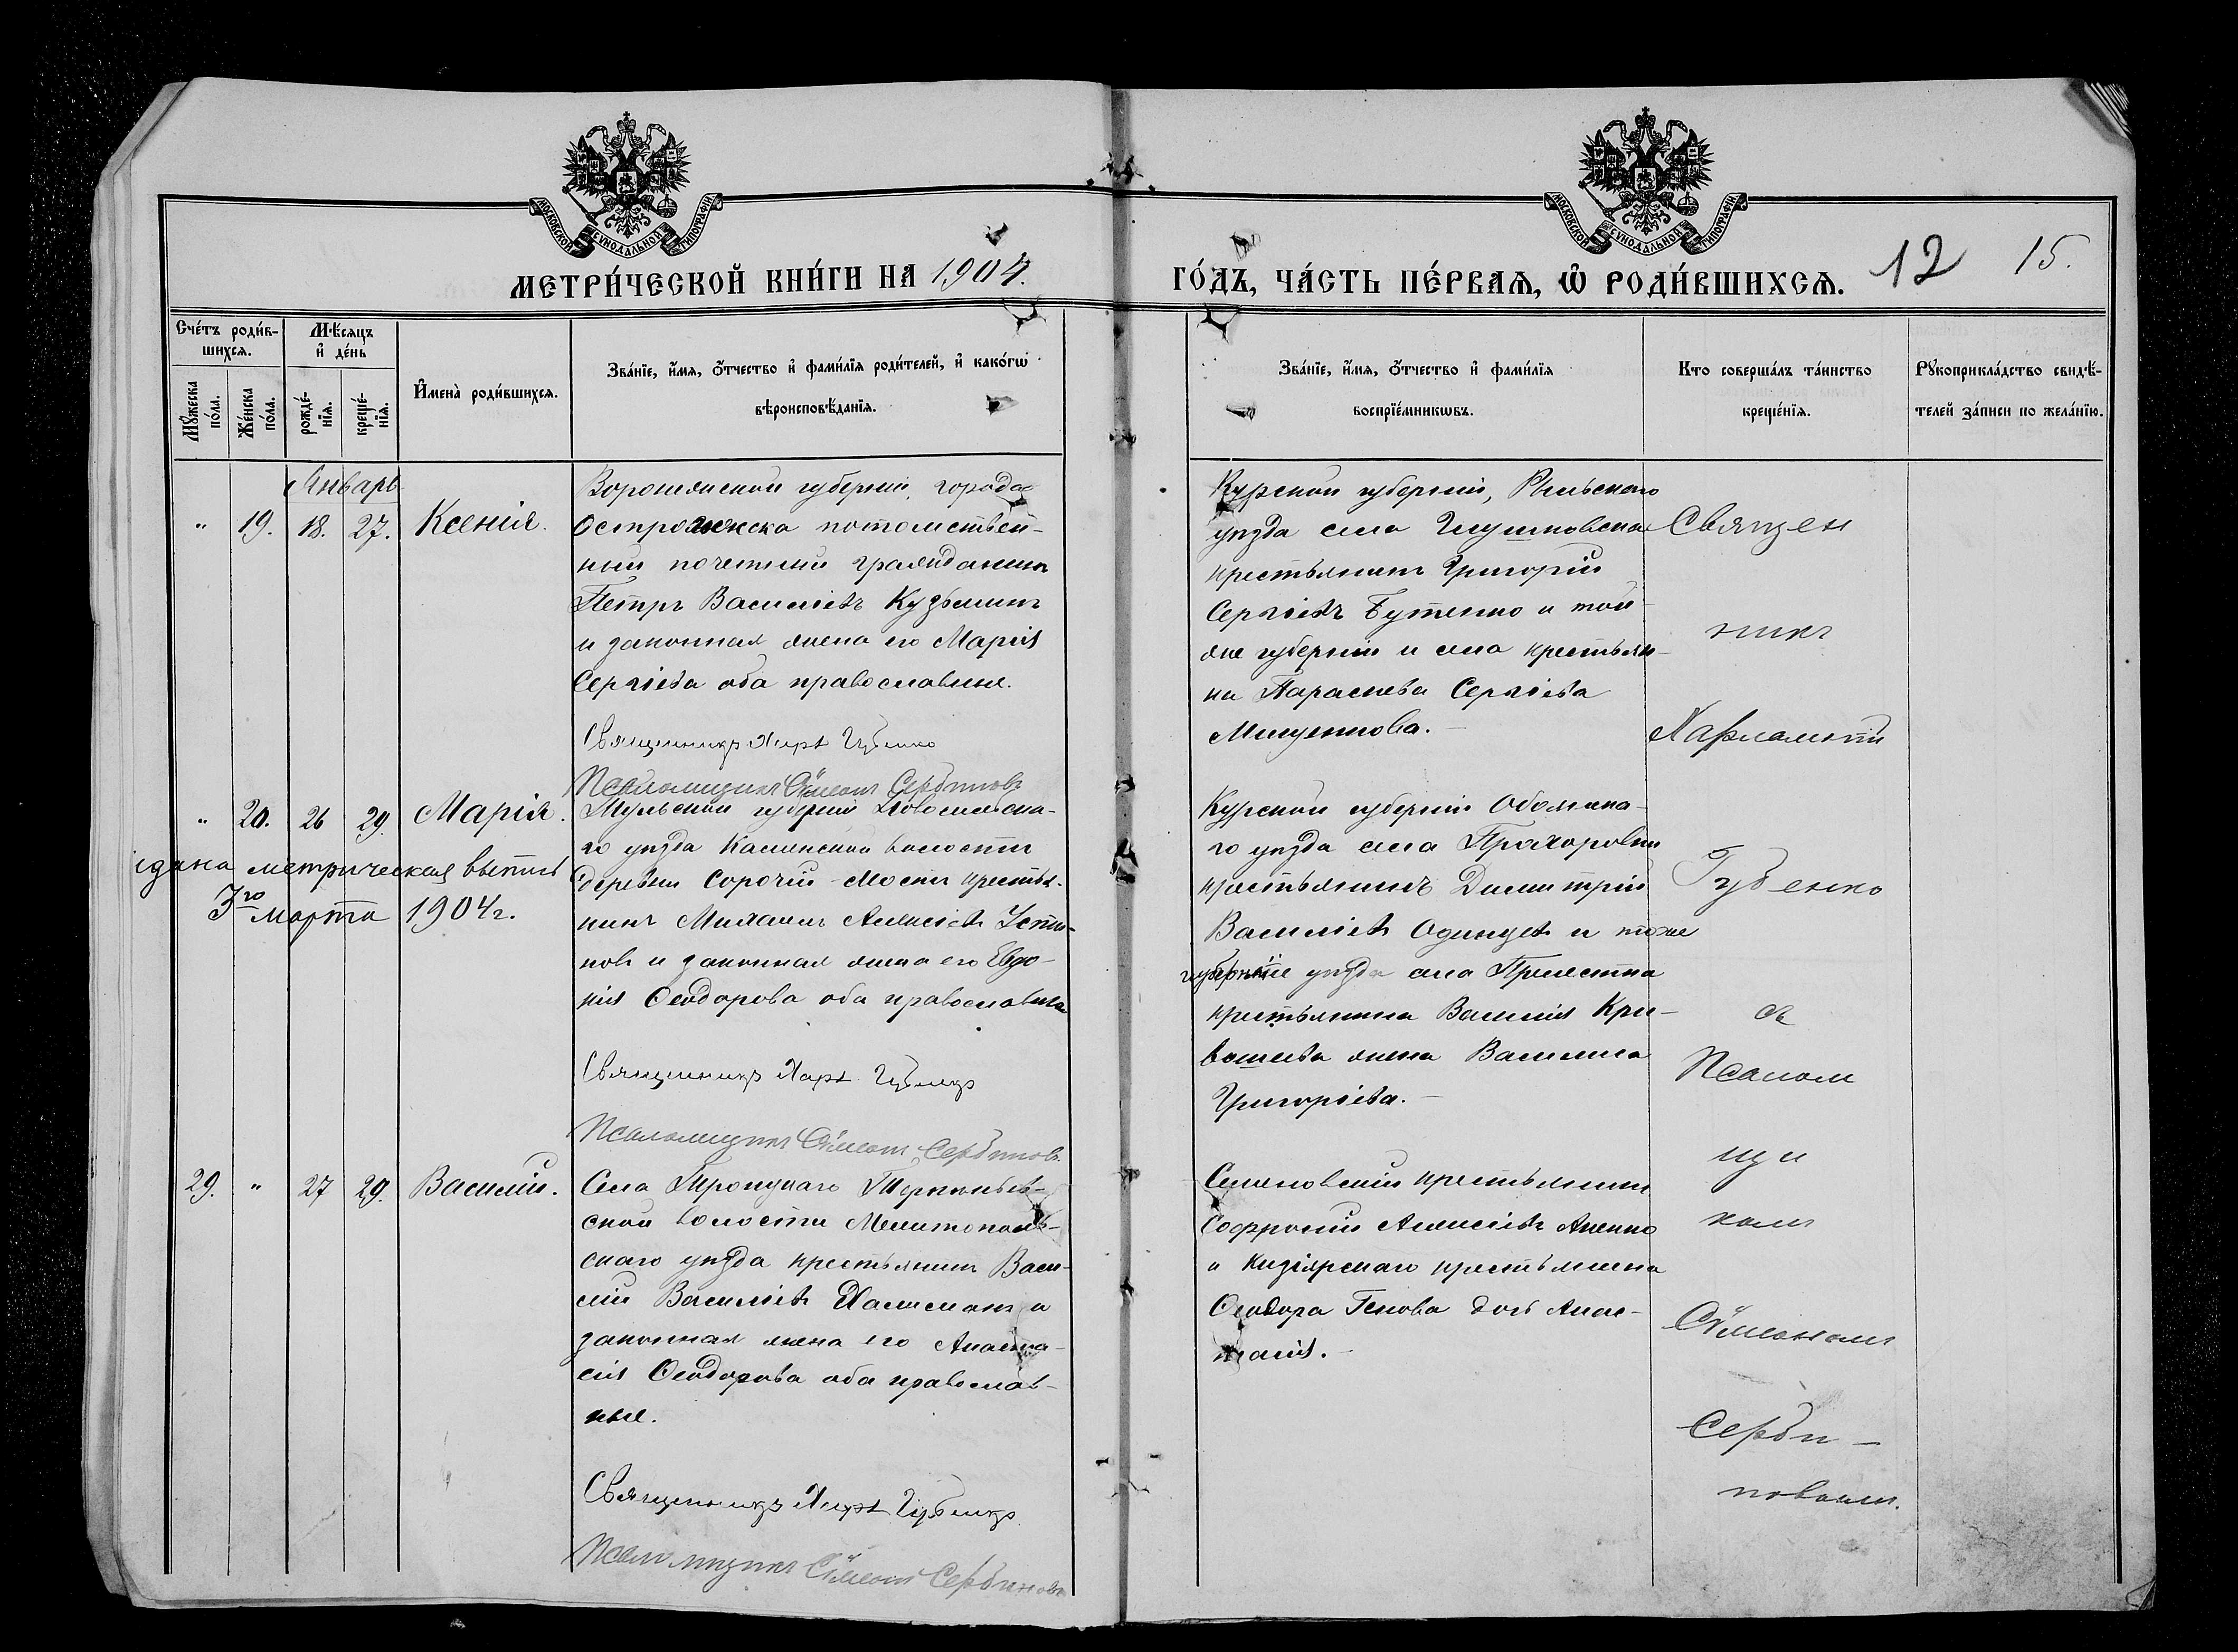 МОСКОВСКОЙ СѴНОДАЛЬНОЙ ТИПОГРАФІИ
МОСКОВСКОЙ СѴНОДАЛЬНОЙ ТИПОГРАФІИ
МЕТРИ́ЧЕСКОЙ КНИ́ГИ НА 1904.
ГО́ДЪ, ЧА́СТЬ ПЕ́РВАѦ, Ѽ РОДИ́ВШИХСѦ. 12 15.
Сче́тъ роди́в-
шихсѧ.
Мꙋ́жеска по́ла.
Же́нска по́ла.
Мѣ́сѧцъ
и҆ де́нь
рожде́-
нїѧ.
креще́-
нїѧ.
И҆мена̀ роди́вшихсѧ.
Зва́нїе, и҆́мѧ, ѻ҆́тчество и҆ фами́лїѧ роди́телей, и҆ како́гѡ
вѣроисповѣ́данїѧ.
Зва́нїе, и҆́мѧ, ѻ҆́тчество и҆ фами́лїѧ
воспрїе́мникѡвъ.
Кто соверша́лъ та́инство
креще́нїѧ.
Рꙋкоприкла́дство свидѣ́-
телей за́писи по жела́нїю.
Январь
" 19. 18. 27. Ксенія.
Воронежской губерніи, города
Острогожска потомствен-
ный почетный гражданинъ
Петръ Василіевъ Кузьминъ
и законная жена его Марія
Сергіева оба православные.
Священникъ Харл. Губенко
Псаломщикъ Сѵмеонъ Сербиновъ
Курской губерніи, Рыльскаго
уѣзда села Глушковска
крестьянинъ Григорій
Сергіевъ Бутенко и той
же губерніи и села крестьян-
ка Параскева Сергіева
Мищенкова.
" 20. 26 29. Марія.
Тульской губерніи Новосильска-
го уѣзда Каменской волости
деревни Сорочій-Мостъ крестья-
нинъ Михаилъ Алексіевъ Усти-
новъ и законная жена его Евдо-
кія Ѳеодорова оба православные
Священникъ Харл. Губенко
Псаломщикъ Сѵмеонъ Сербиновъ.
дана метрическая выпись
3го марта 1904 г.
Курской губерніи Обоянска-
го уѣзда села Прохоровки
крестьянинъ Димитрій
Василіевъ Одинцевъ и тоже
губерніи уѣзда села Прелестна
крестьянина Василія Кри-
вошеева жена Василиса
Григоріева.
29. " 27 29. Василій.
Села Троицкаго Терпеньев-
ской волости Мелитополь-
скаго уѣзда крестьянинъ Васи-
лій Василіевъ и
законная жена его Анаста-
сія Ѳеодорова оба православ-
ные.
Священникъ Харл. Губенко
Псаломщикъ Сѵмеонъ Сербиновъ
Семеновскій крестьянинъ
Софроній Алексіевъ
и Кизіярскаго крестьянина
Ѳеодора дочь Анас-
тасія.
Священ
никъ
Харлампій
Губенко
съ
Псалом
щи
комъ
Сѵмеономъ
Серби-
новымъ.